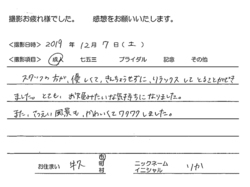 撮影お疲れ様でした。 感想をお願いいたします。
<撮影日時> 2019年 12月 7日(土)
<撮影項目> 成人 七五三 ブライダル 記念 その他
スタッフの方が、優しくて、きんちょうせずに、リラックスしてとることができ
ました。とても、お気に入りたい気持ちになりました。
また、てんない風景も、かわいくてワクワクしました。
お住まい 町 村
ニックネーム
イニシャル